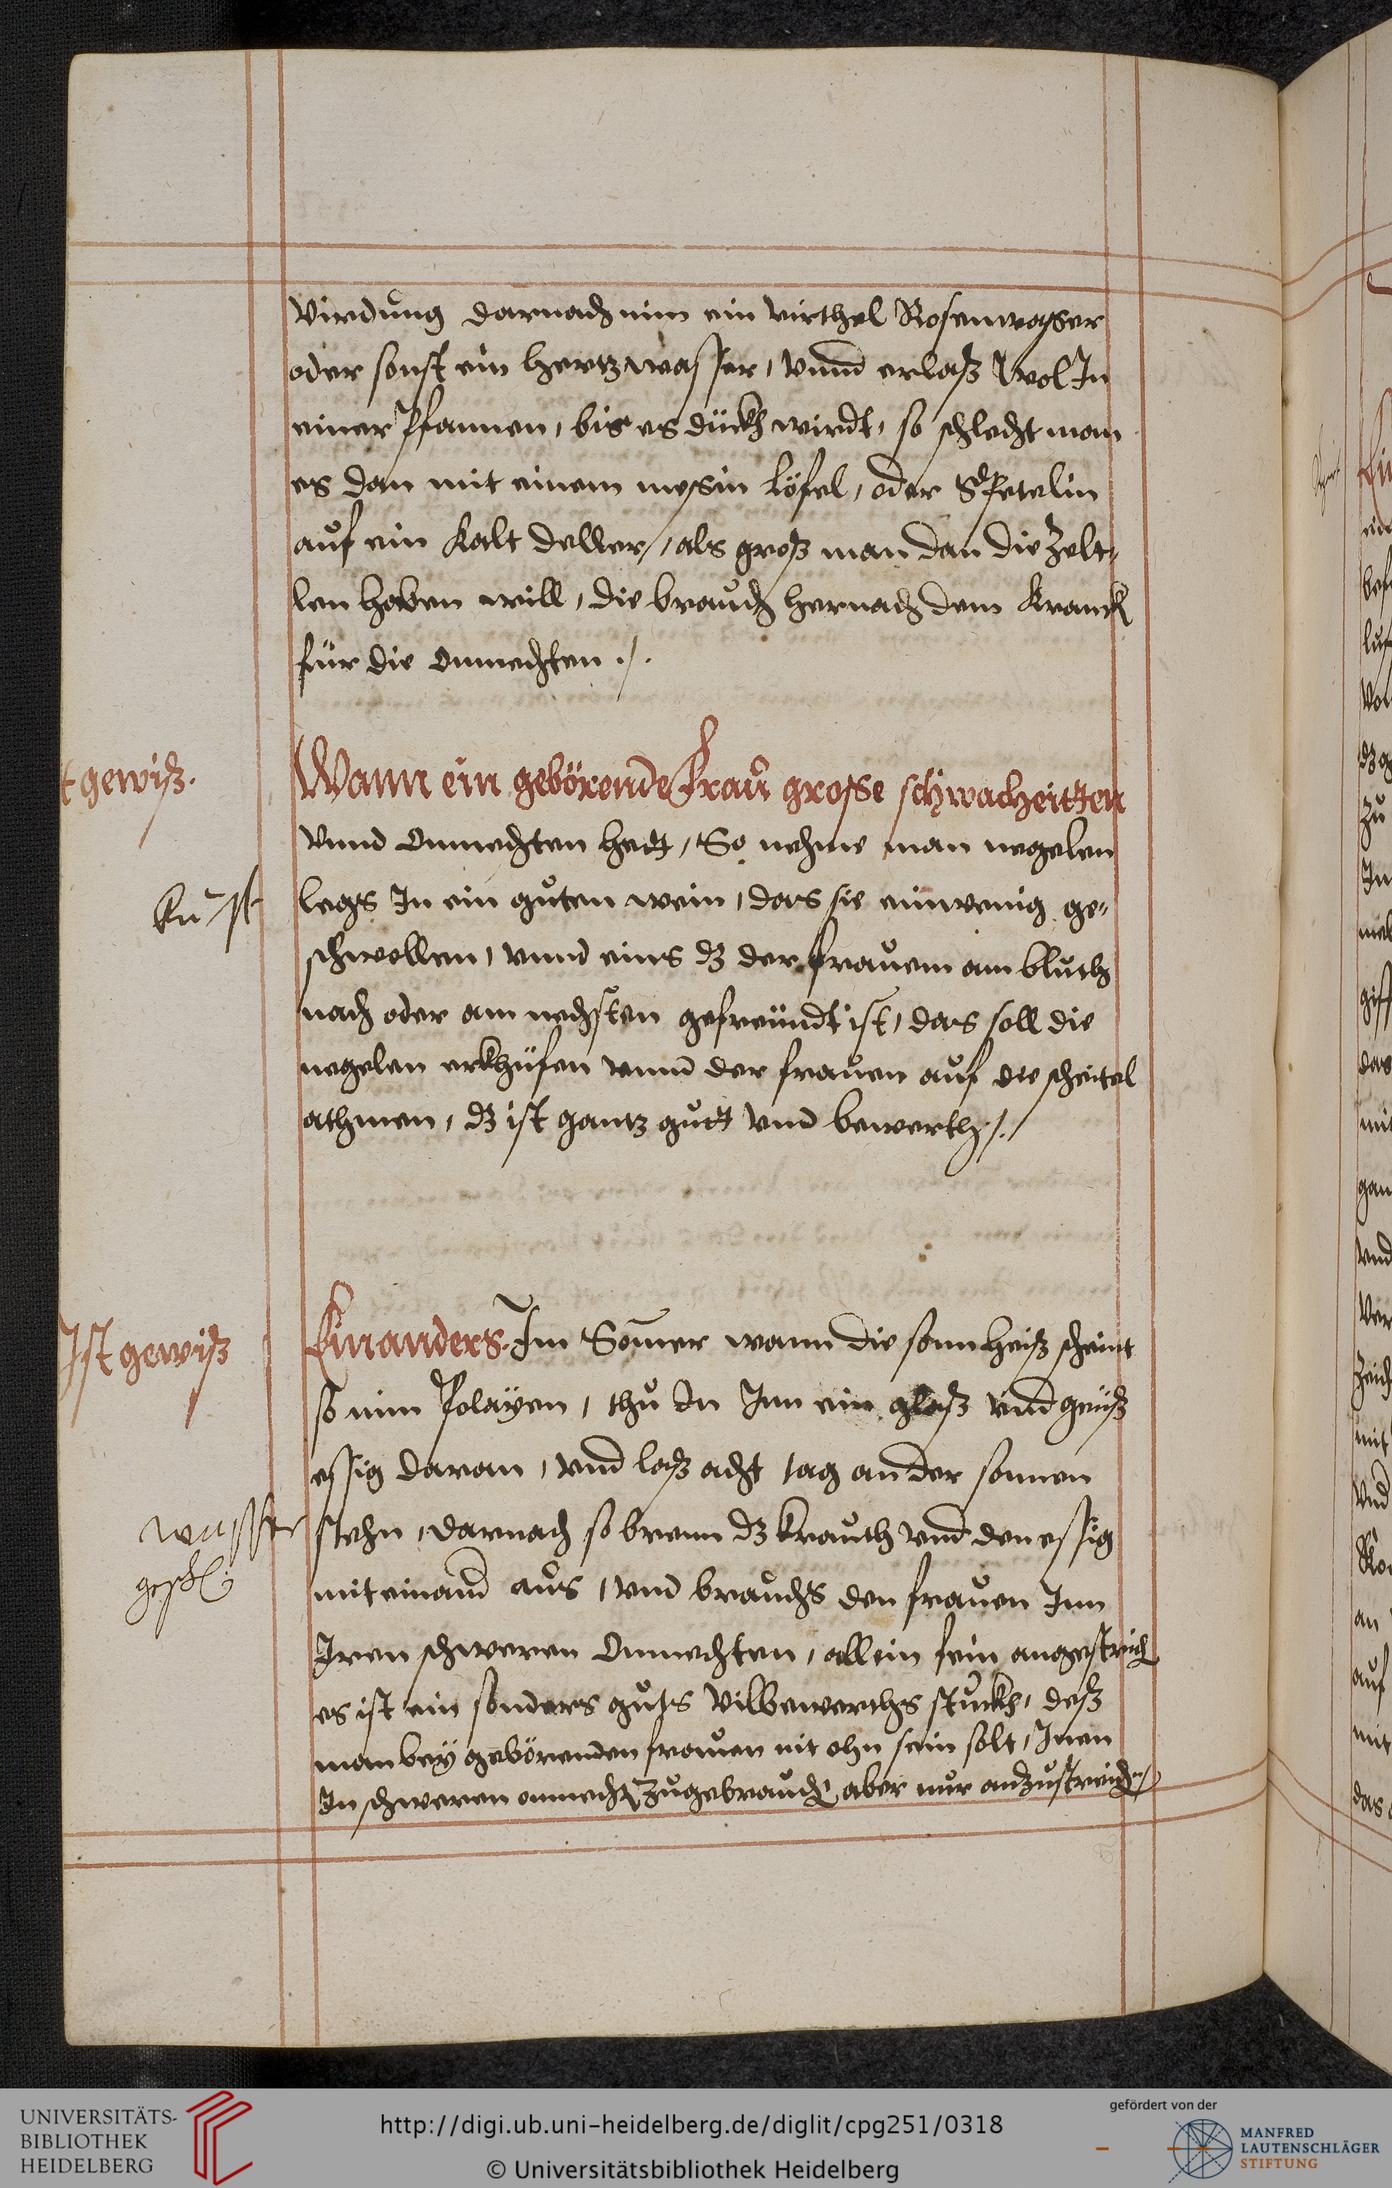 Virdung darnach nim ein virthel Rosenwasser
oder sonst ein hertzwasser, vnnd erlaß wol In
einer Pfannen, bis es dückh wirdt, so schlecht man
es dan mit einem messin löfel, oder Spetelin
auf ein kalt deller, als groß man dan die Zelt-
len haben will, die brauch hernach dem Kranck
für die Onmechten ./.
t gewiß.
Wann ein gebörende Frau grosse schwacheitten
vnnd Onmechten hett, So nehme man negelen
legs In ein guten wein, das sie ein wenig ge-
schwollen, vnnd eins dz der frauem am bluth
nach oder am nechsten gefreündt ist, das soll die
negelen erkhüfen vnnd der frauen auf die scheitel
athmen, dz ist gantz gutt vnd bewerth ./.
Ist gewiß
Ein anders. Im Som̄er wann die sonn heiß scheint
so nim Polayen, thu In Inn ein glaß vnd geuß
essig daran, vnd laß acht tag an der sonnen
wasser
stehn, darnach so brenn dz krauth vnd den essig
mit einand aus, vnd brauchs den frauen Inn
Iren schweren Onmechten, allein fein angestrich
es ist ein sonders guts vilbewerths stuckh, deß
man bey gebörenden frauen nit ohn sein solt, Inen
In schweren onmecht Zugebrauch aber nur anzustreich ./.
UNIVERSITÄTS-
BIBLIOTHEK
HEIDELBERG
http://digi.ub.uni-heidelberg.de/diglit/cpg251/0318
© Universitätsbibliothek Heidelberg
gefördert von der
MANFRED
LAUTENSCHLÄGER
STIFTUNG